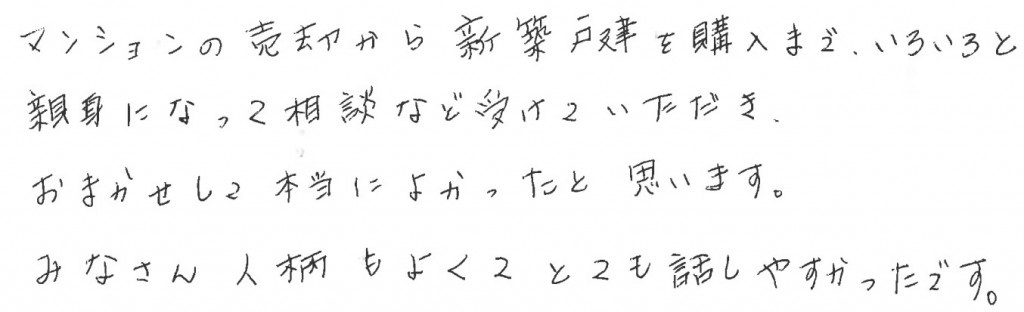 マンションの売却から新築戸建を購入まで、いろいろと
親身になって相談など受けていただき、
おまかせして本当によかったと思います。
みなさん人柄もよくてとても話しやすかったです。